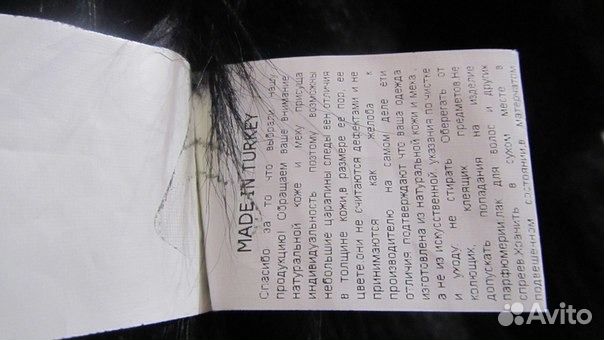 MADE IN TURKEY
Спасибо за то что выбрали нашу
продукцию! Обращаем ваше внимание
натуральной коже и меху присуща
индивидуальность поэтому возможны
небольшие царапины следы вен,отличия
в толщине кожи,в размере её пор, ее
цвете.они не считаются дефектами и не
принимаются как желоба к
производителю на самом деле ети
отличия подтверждают что ваша одежда
изготовлена из натуральной кожи и меха .
а не из искусственной. указания по чистке
и уходу не стирать Оберегать от
колющих, клеящих предметов.не
допускать попадания на изделие
парфюмерии,лак для волос и других
спреев.Хранить в сухом месте в
подвешенном состоянии,в материчатом
Avito